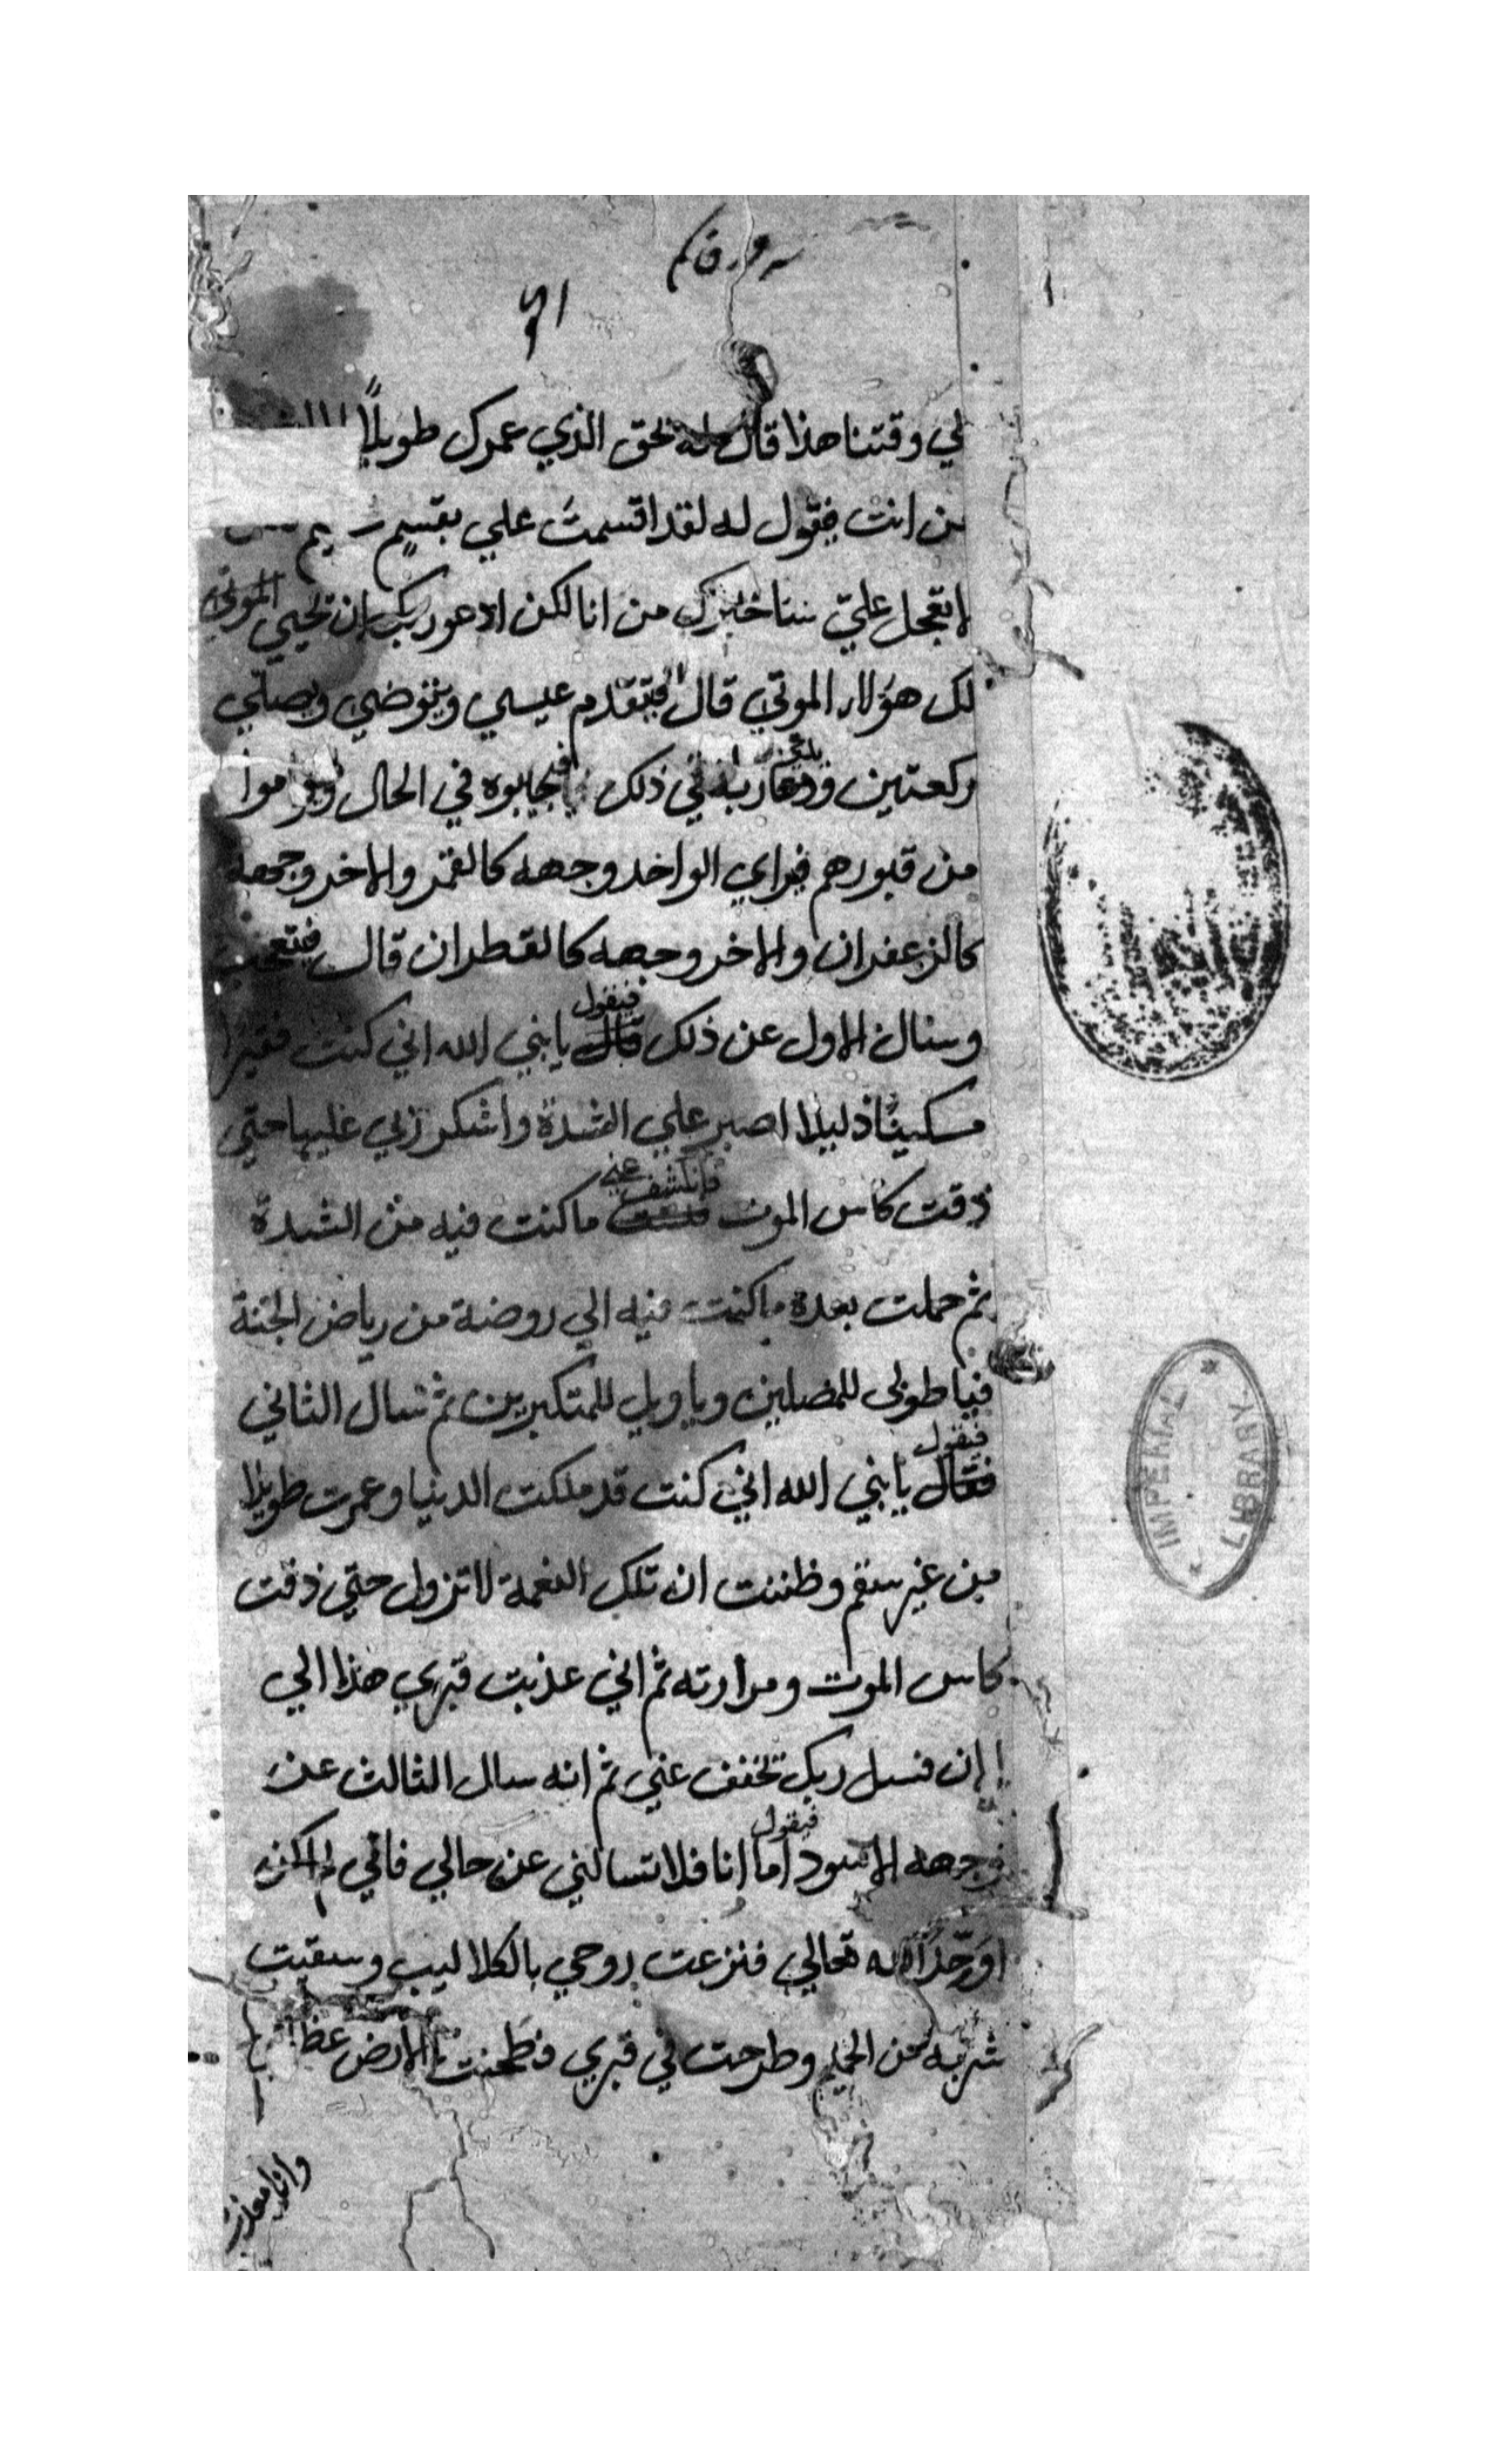 لي وقتنا هذا قال له بحق الذي عمرك طويلاً
من انت فيقول له لقد اقسمت علي بقسم
لا تعجل علي سناخبرك من انا لكن ادعو ربك ان تحيي الموتي
لك هولاء الموتي قال فيتقدم عيسي ويتوضي ويصلي
ركعتين ودعا ربه في ذلك فيجابوه في الحال وقاموا
من قبورهم فراي الواحد وجهه كالقمر والاخر وجهه
كالزعفران والاخر وجهه كالقطران قال فتعجب
وسال الاول عن ذلك قال فيقول يا نبي الله اني كنت فقيرا
مسكينا ذليلا اصبر علي الشدة واشكر ربي عليها حتي
ذقت كاس الموت فانكشف عني ما كنت فيه من الشدة
ثم حملت بعده ما كنت فيه الي روضة من رياض الجنة
فيا طوبي للمصلين ويا ويل للمتكبرين ثم سال الثاني
فقال فيقول يا نبي الله اني كنت قد ملكت الدنيا وعمرت طويلا
من غير سقم وظننت ان تلك النعمة لا تزول حتي ذقت
كاس الموت ومرارته ثم اني عذبت قبري هذا الي
الان فسل ربك تخفف عني ثم انه سال الثالث عن
وجهه الاسود فيقول اما انا فلا تسالني عن حالي فاني لم اكن
اوحد الله تعالي فنزعت روحي بالكلاليب وسقيت
شربه من الحميم وطرحت في قبري فطحنت الارض
وانا معذب
IMPERIAL LIBRARY